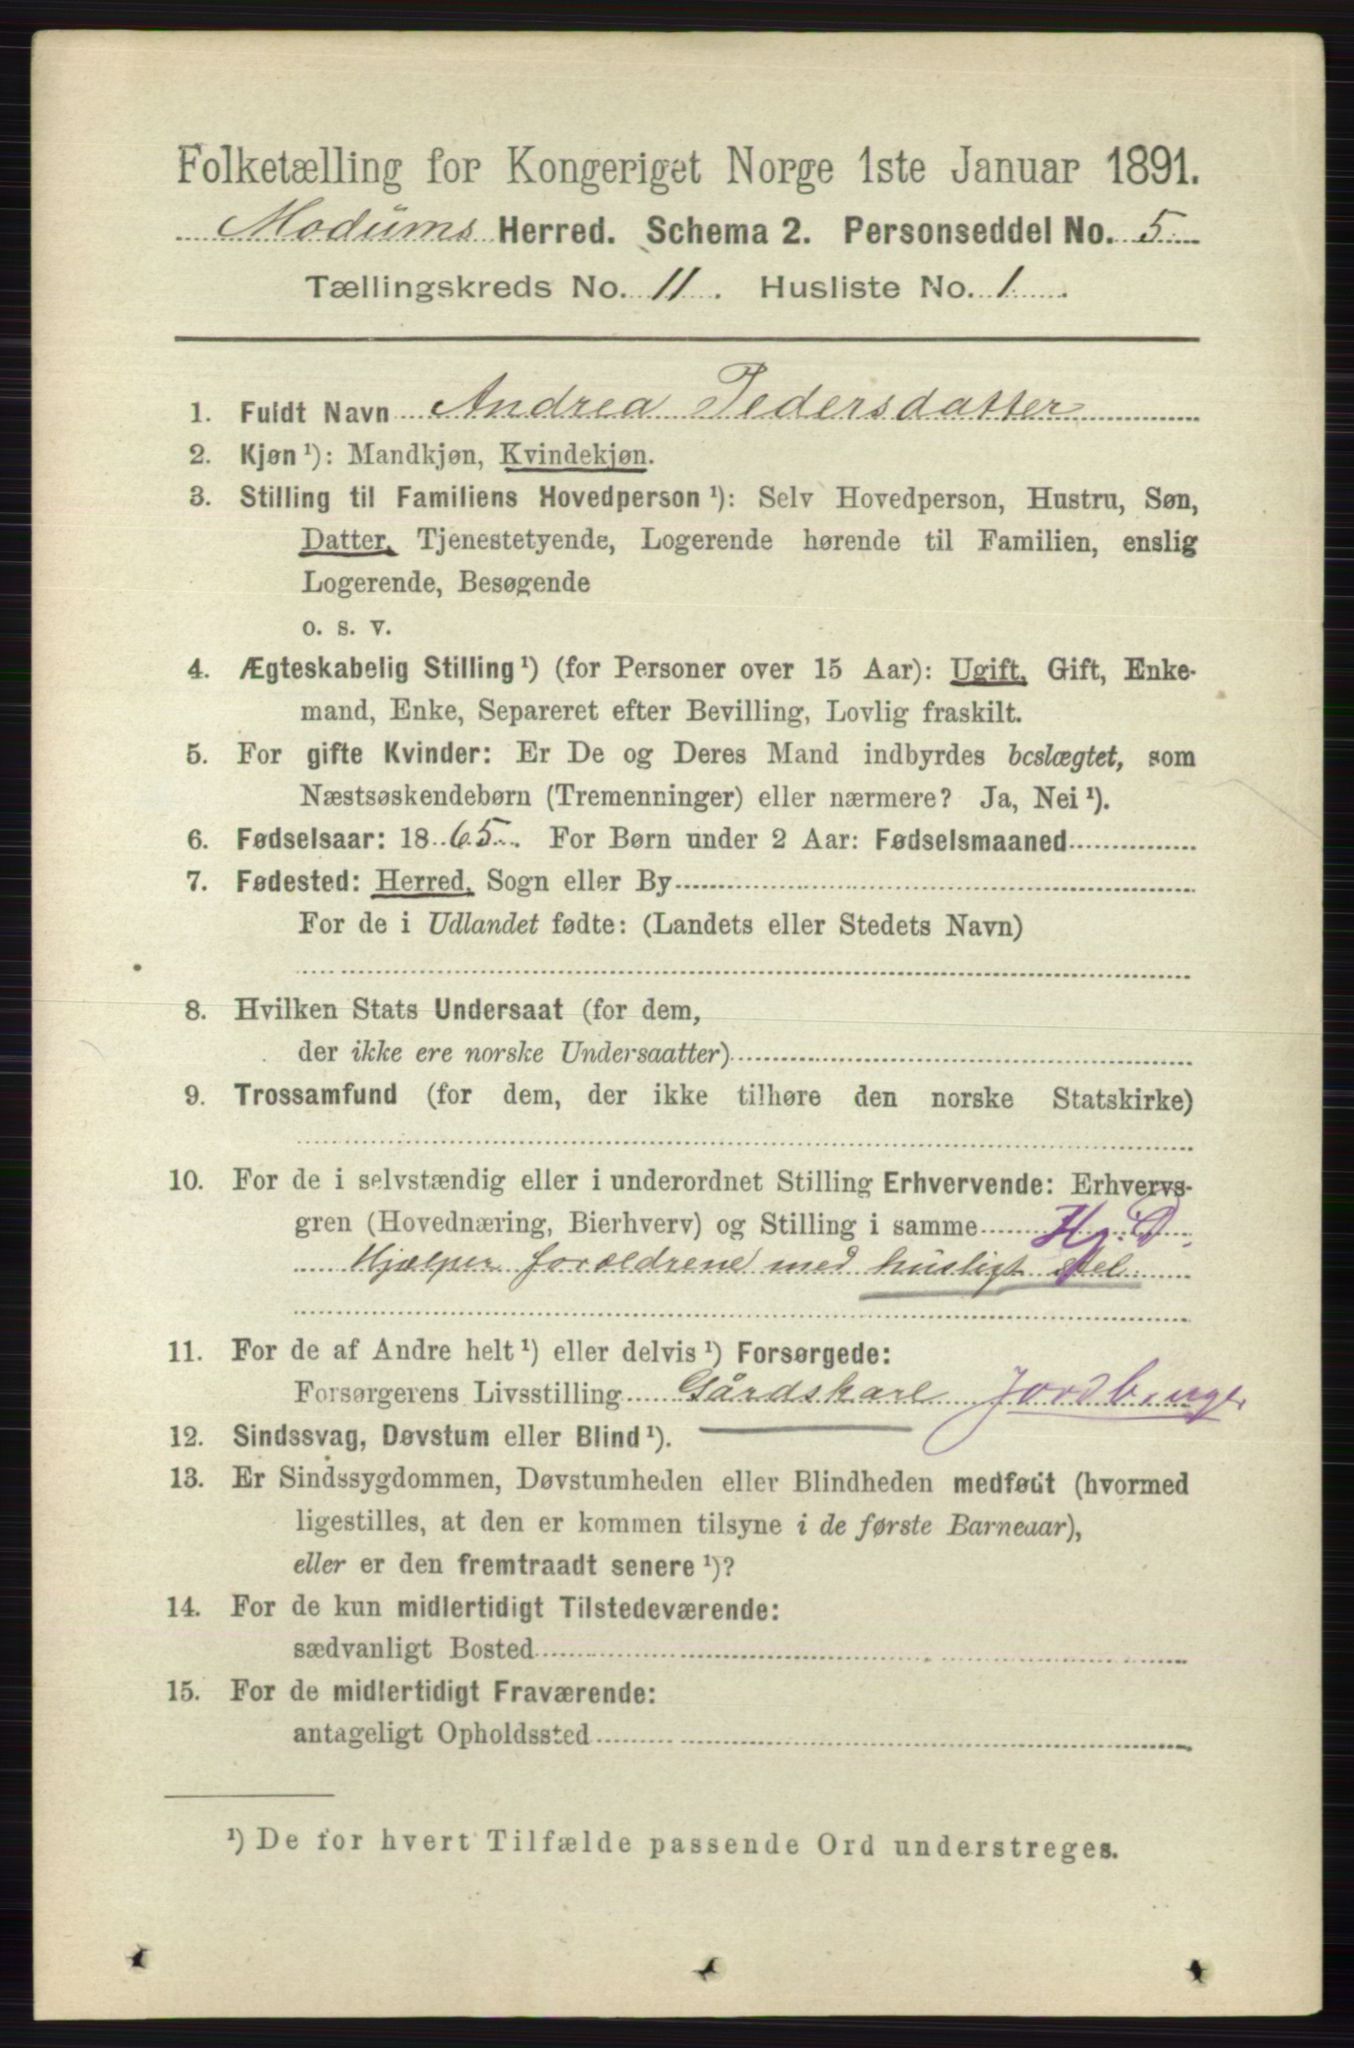 Folketælling for Kongeriget Norge 1ste Januar 1891.
Modums Herred. Schema 2. Personseddel No. 5
Tællingskreds No. 11. Husliste No. 1.
1. Fuldt Navn Andrea Pedersdatter
2. Kjøn ¹): Mandkjøn, Kvindekjøn.
3. Stilling til Familiens Hovedperson ¹): Selv Hovedperson, Hustru, Søn,
Datter, Tjenestetyende, Logerende hørende til Familien, enslig
Logerende, Besøgende
o. s. v.
4. Ægteskabelig Stilling ¹) (for Personer over 15 Aar): Ugift, Gift, Enke-
mand, Enke, Separeret efter Bevilling, Lovlig fraskilt.
5. For gifte Kvinder: Er De og Deres Mand indbyrdes beslægtet, som
Næstsøskendebørn (Tremenninger) eller nærmere? Ja, Nei ¹).
6. Fødselsaar: 1865. For Børn under 2 Aar: Fødselsmaaned
7. Fødested: Herred, Sogn eller By
For de i Udlandet fødte: (Landets eller Stedets Navn)
8. Hvilken Stats Undersaat (for dem,
der ikke ere norske Undersaatter)
9. Trossamfund (for dem, der ikke tilhøre den norske Statskirke)
10. For de i selvstændig eller i underordnet Stilling Erhvervende: Erhvervs-
gren (Hovednæring, Bierhverv) og Stilling i samme Hj. D.
Hjælper foroldrene med husligt stel
11. For de af Andre helt ¹) eller delvis ¹) Forsørgede:
Forsørgerens Livsstilling Gårdskarl Jordbruger
12. Sindssvag, Døvstum eller Blind ¹).
13. Er Sindssygdommen, Døvstumheden eller Blindheden medfødt (hvormed
ligestilles, at den er kommen tilsyne i de første Barneaar),
eller er den fremtraadt senere ¹)?
14. For de kun midlertidigt Tilstedeværende:
sædvanligt Bosted
15. For de midlertidigt Fraværende:
antageligt Opholdssted
¹) De for hvert Tilfælde passende Ord understreges.